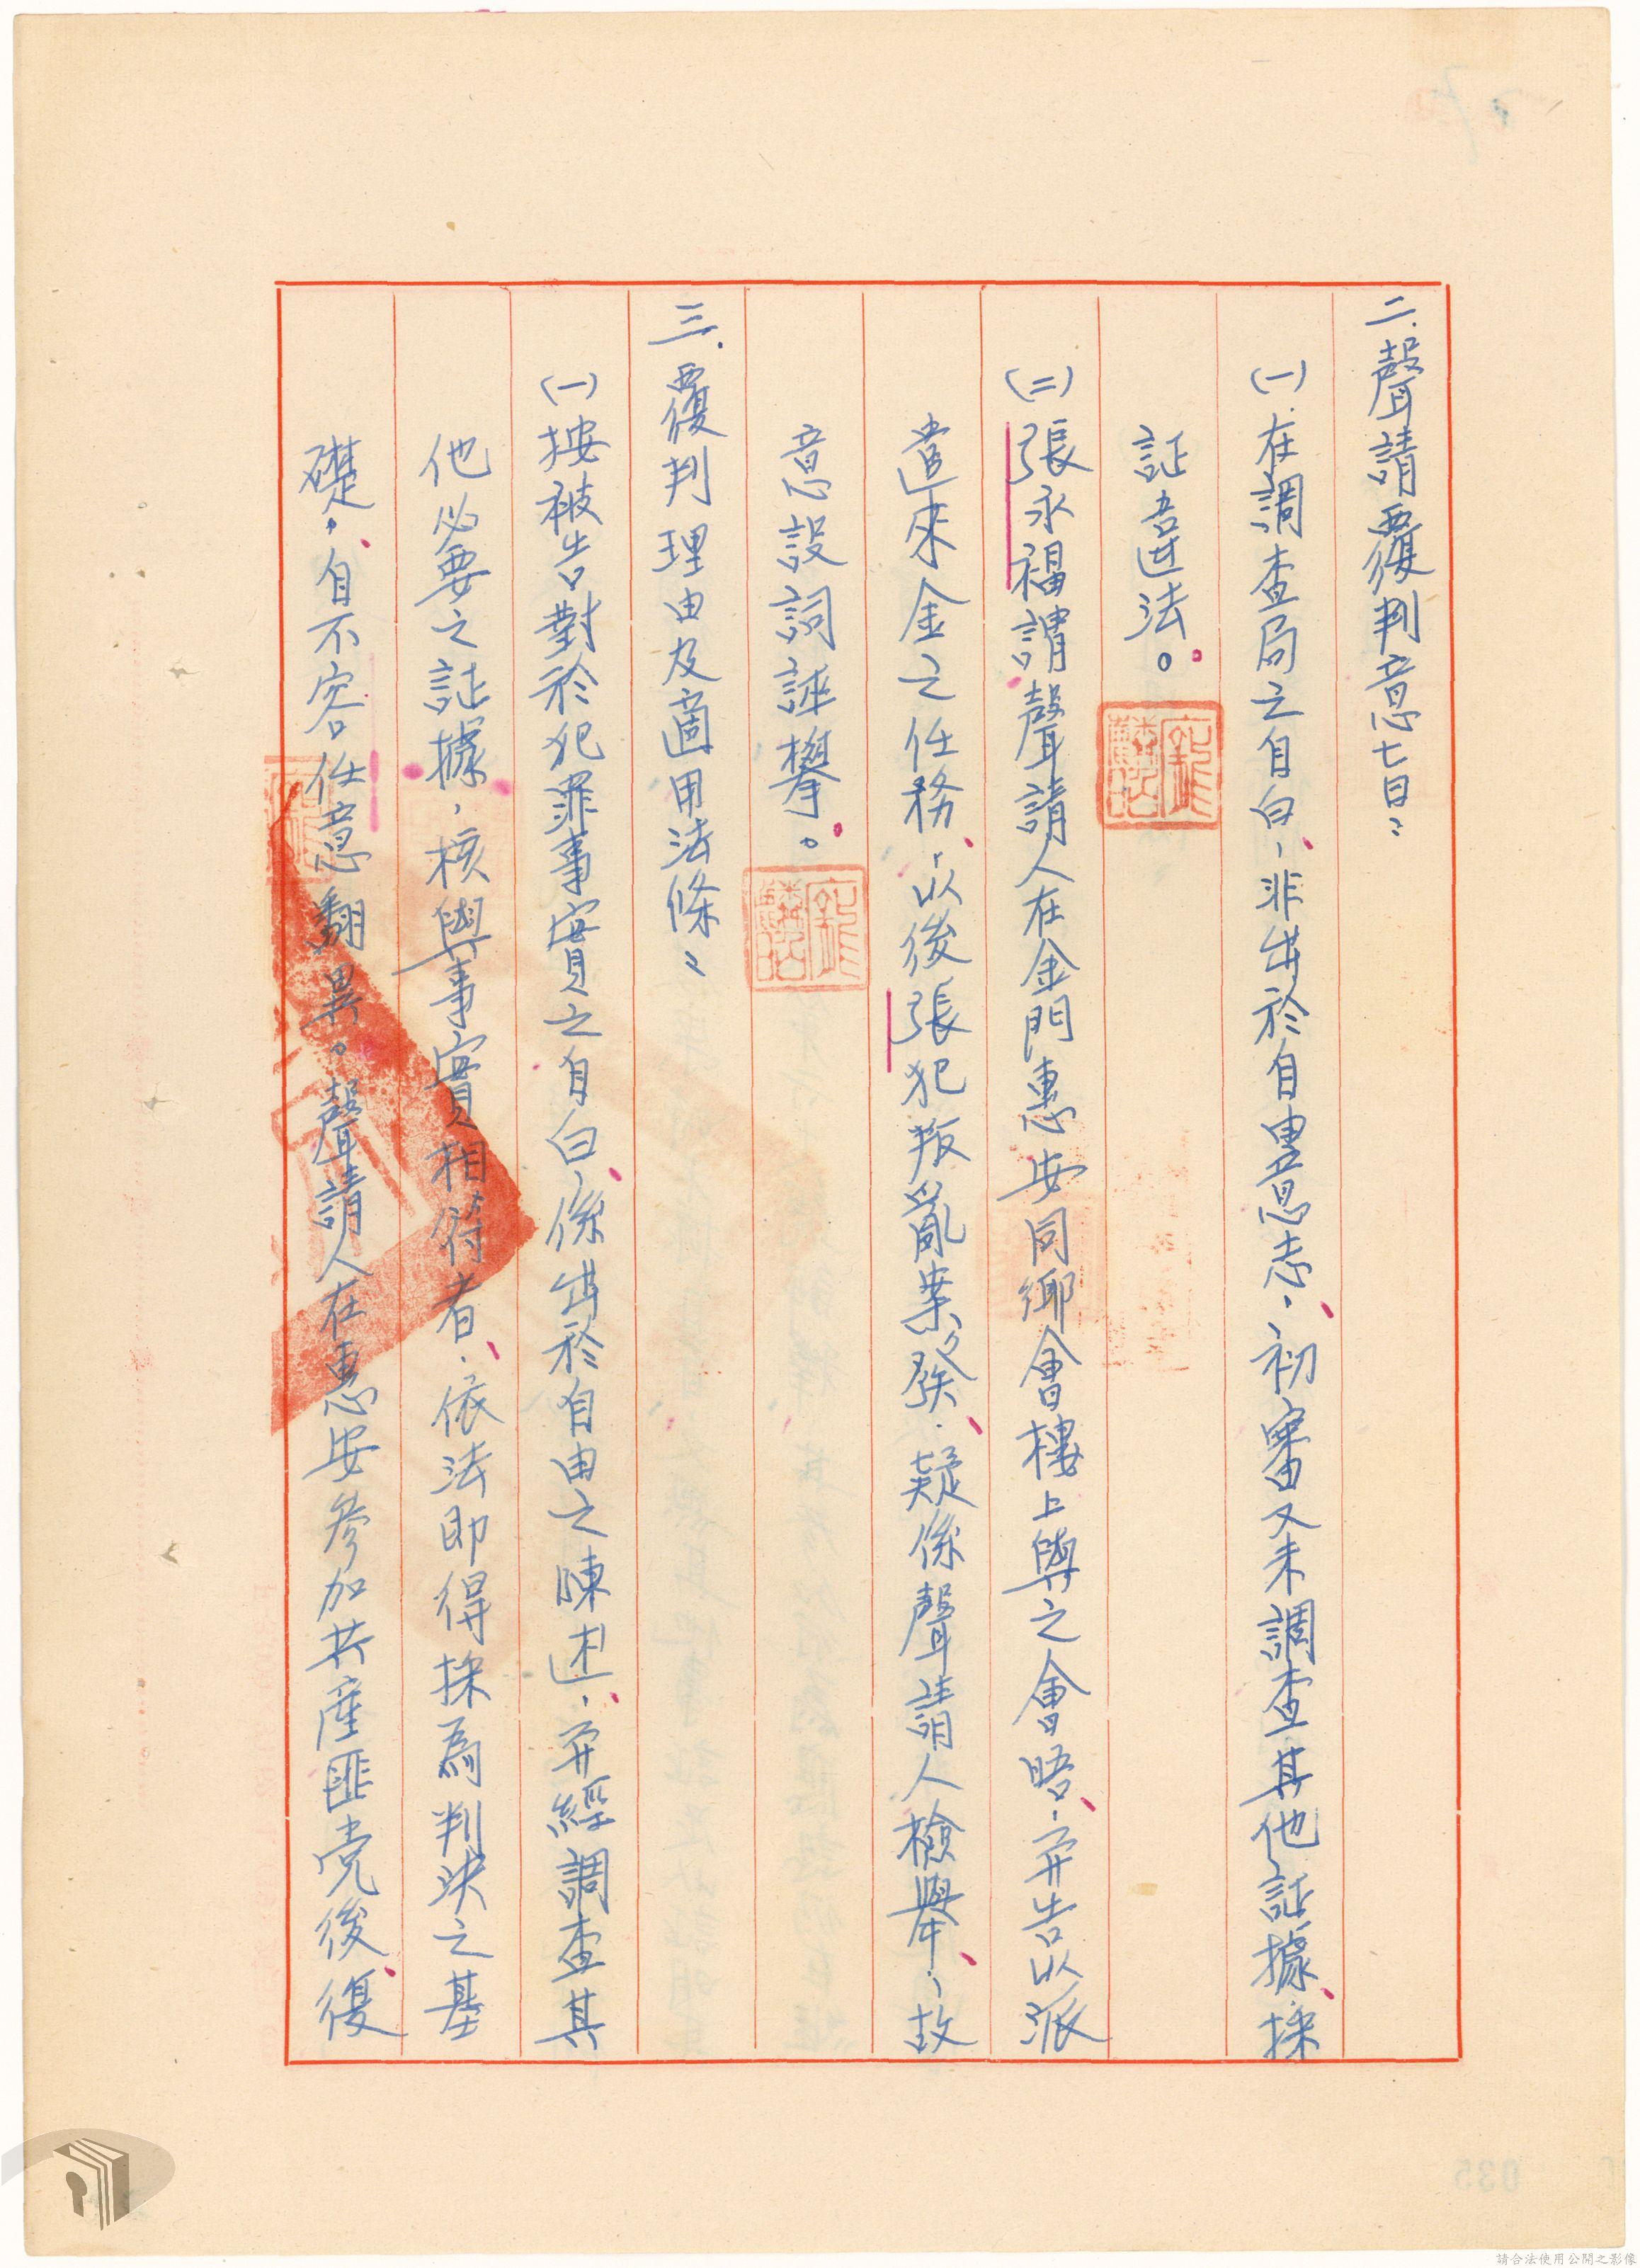 二.聲請覆判意旨：
(一)在調查局之自白，非出於自由意志，初審又未調查其他証據，採
証違法。
(二)張永福謂聲請人在金門惠安同鄉會樓上與之會晤，并告以派
遣來金之任務，以後張犯叛亂案發，疑係聲請人檢舉，故
意設詞誣攀。
三.覆判理由及適用法條：
(一)按被告對於犯罪事實之自白，係出於自由之陳述，并經調查其
他必要之証據，核與事實相符者，依法即得採為判決之基
礎，自不容任意翻異。聲請人在惠安參加共產匪党後，復
035
請合法使用公開之影像